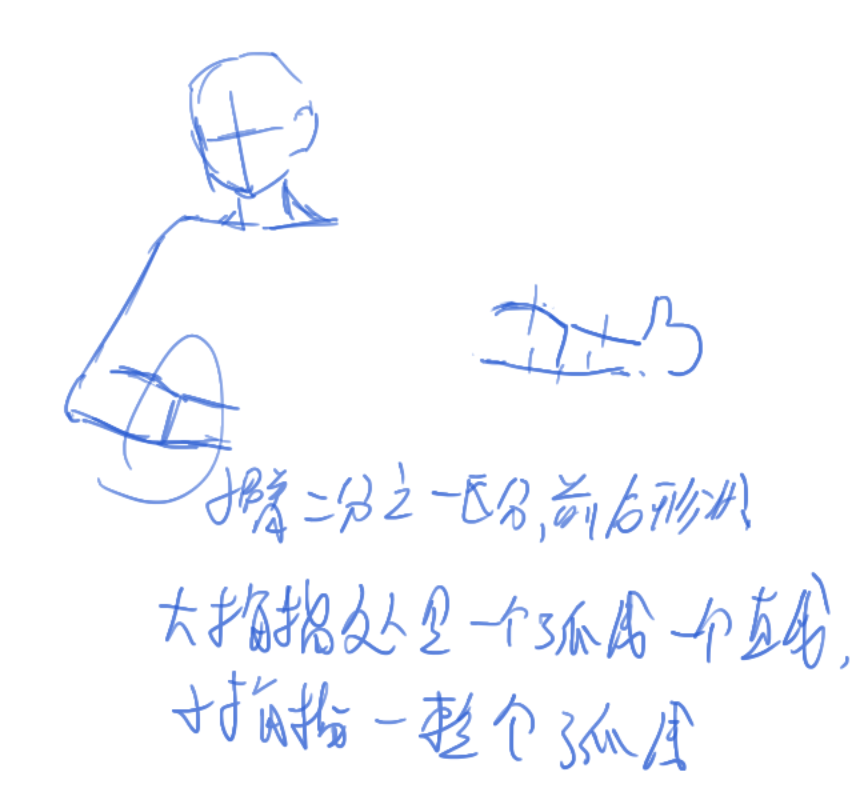 臂二分之一区分,前后形状
大拇指处是一个弧度一个直线,
小拇指一整个弧度